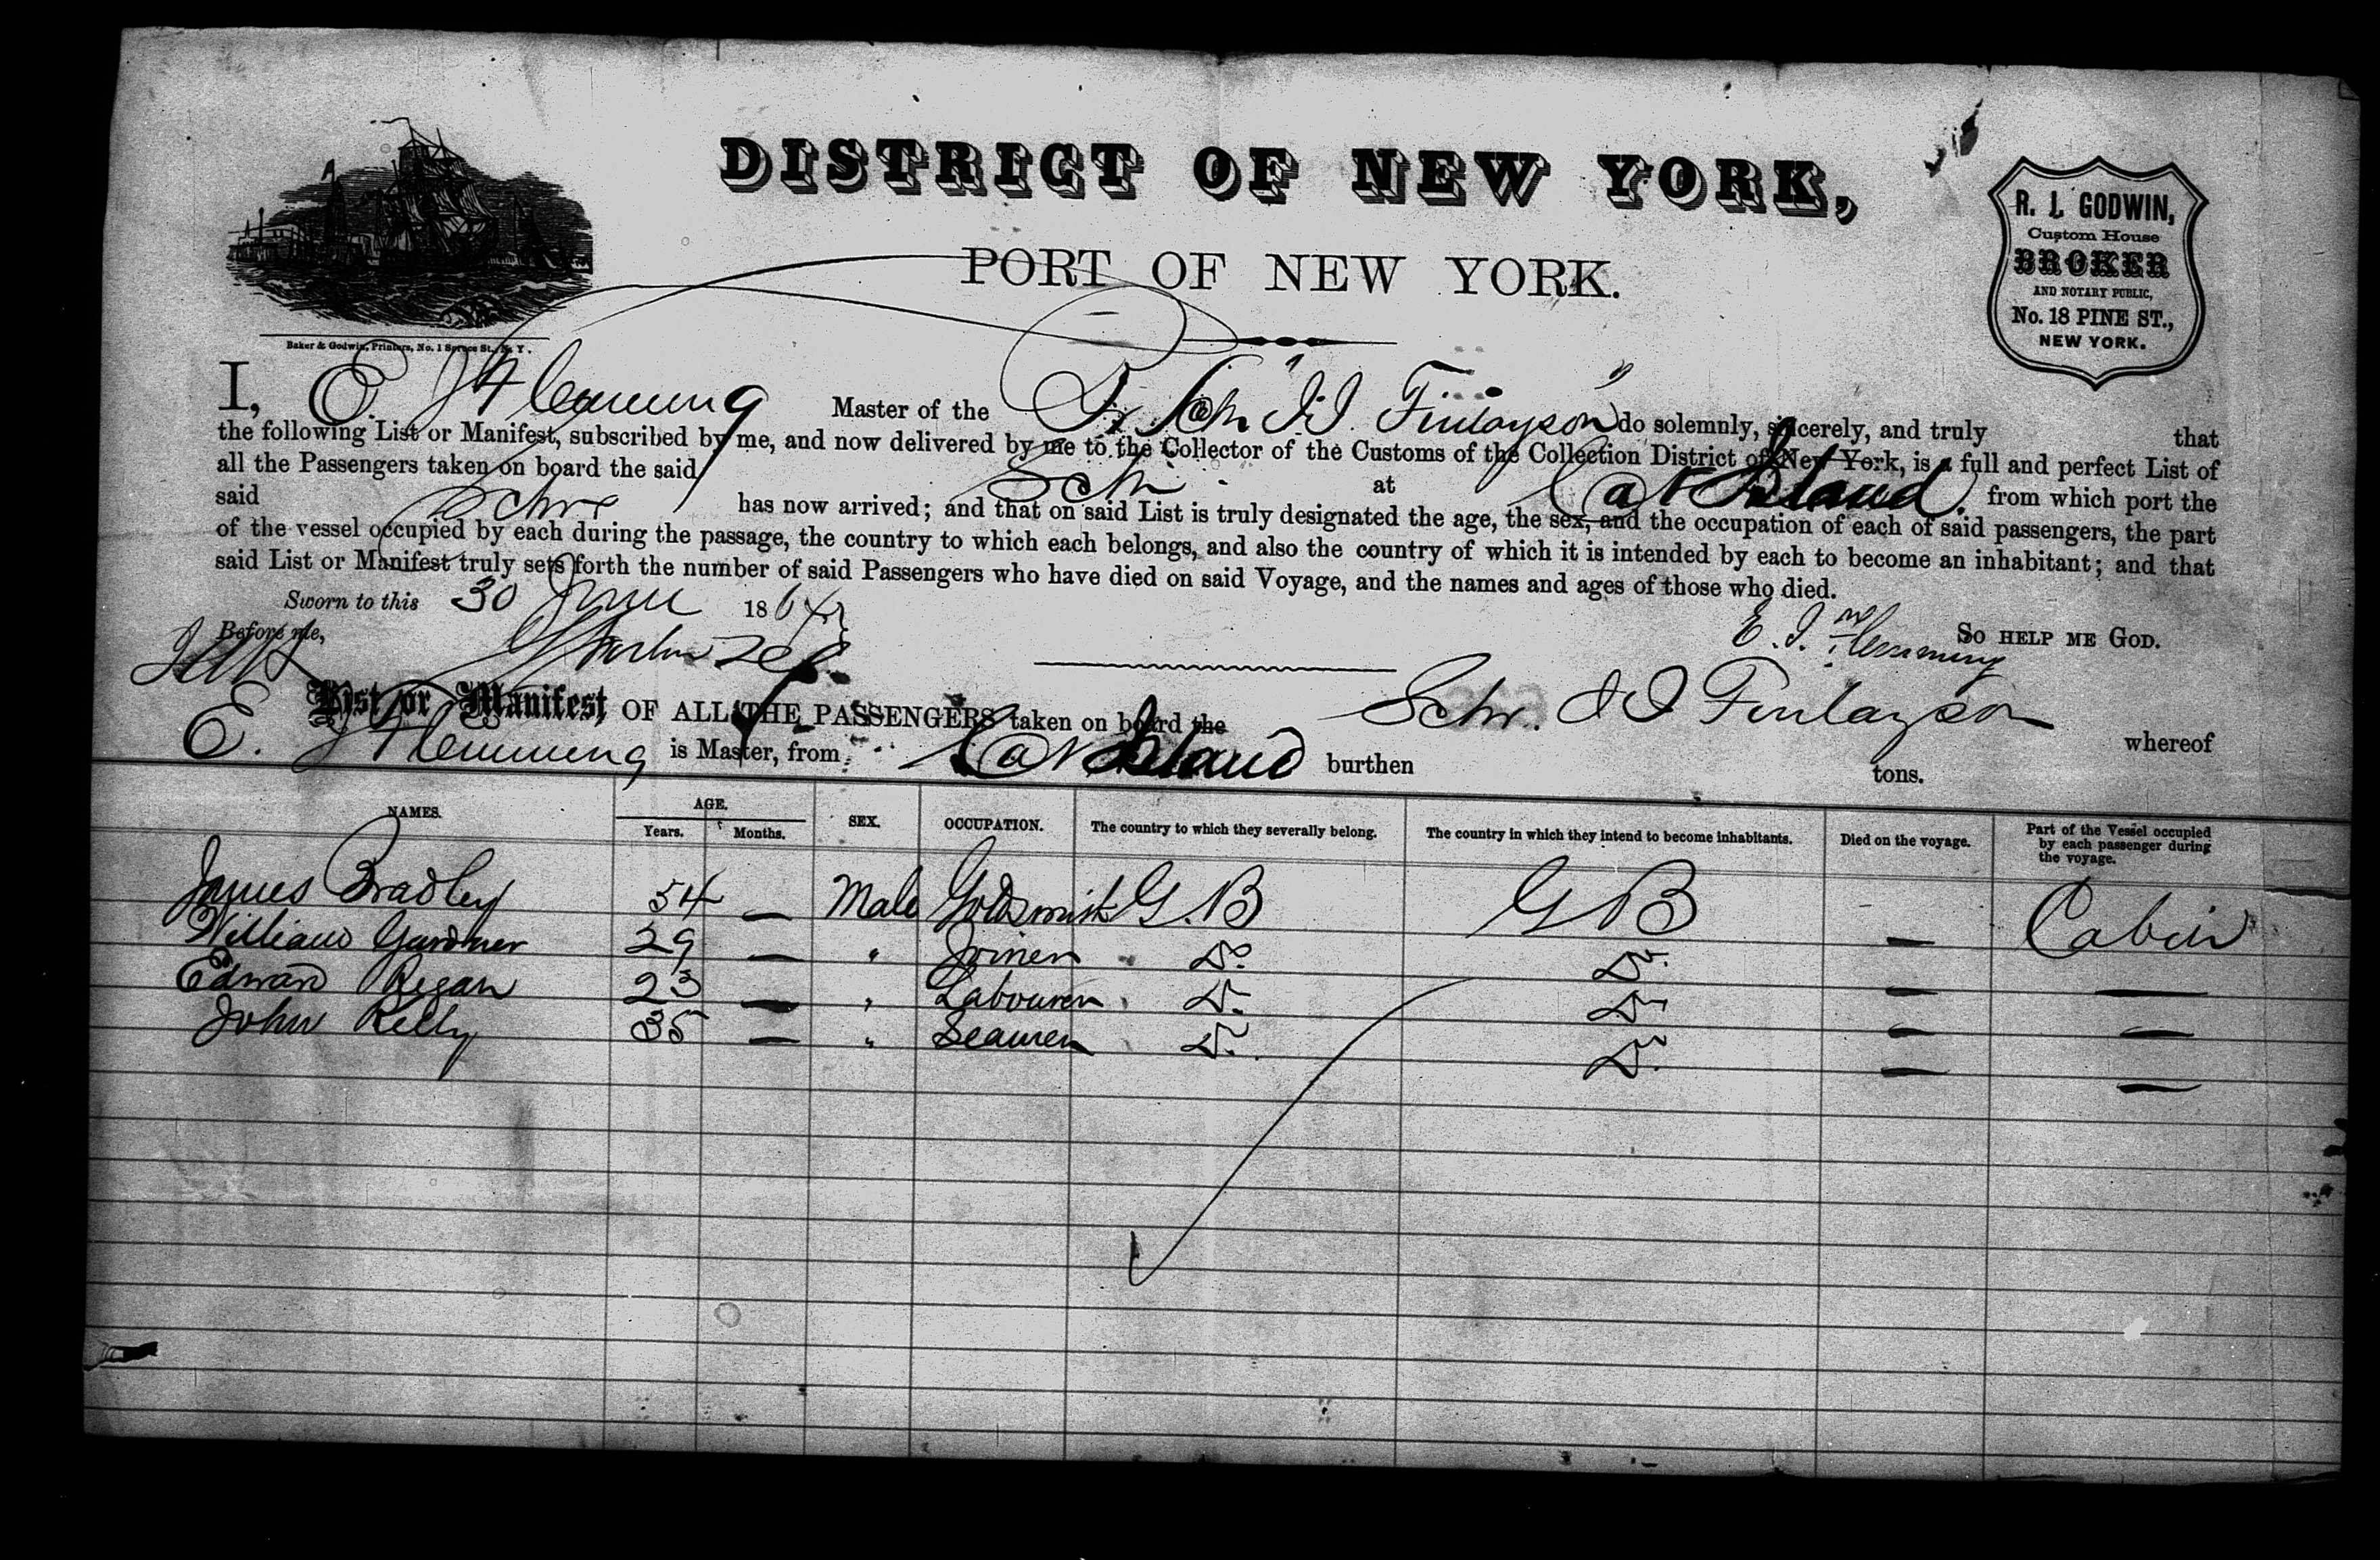 DISTRICT OF NEW YORK,
PORT OF NEW YORK.
R. J. GODWIN,
Custom House
BROKER
AND NOTARY PUBLIC,
No. 18 PINE ST.,
NEW YORK.
Baker & Godwin, Printers, No. 1 Spruce St., N. Y.
I, E. J Flemming Master of the Br Schr "J. J. Finlayson" do solemnly, sincerely, and truly that
the following List or Manifest, subscribed by me, and now delivered by me to the Collector of the Customs of the Collection District of New York, is a full and perfect List of
all the Passengers taken on board the said Schr. at Cat Island. from which port the
said Schr has now arrived; and that on said List is truly designated the age, the sex, and the occupation of each of said passengers, the part
of the vessel occupied by each during the passage, the country to which each belongs, and also the country of which it is intended by each to become an inhabitant; and that
said List or Manifest truly sets forth the number of said Passengers who have died on said Voyage, and the names and ages of those who died.
Sworn to this 30 June 1864
Before me, E. J. Flemming So HELP ME GOD.
List or Manifest OF ALL THE PASSENGERS taken on board the Schr. J J Finlayson whereof
E. J Flemming is Master, from Cat Island burthen tons.
NAMES. AGE. Years. Months. SEX. OCCUPATION. The country to which they severally belong. The country in which they intend to become inhabitants. Died on the voyage. Part of the Vessel occupied by each passenger during the voyage.
James Bradley 54 — Male Goldsmith G. B G B — Cabin
William Gardner 29 — " Joiner Do. Do. — —
Edward Regan 23 — " Labourer Do. Do. — —
John Kelly 35 — " Seamen Do. Do. — —